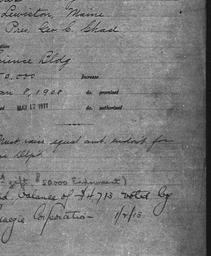 Lewiston, Maine
Pres. Geo C. Chad
Science Bldg
0,000 Increase
an 8, 1908 do. promised
MAY 17 1911 do. authorized
Must raise equal amt. endowt for
Dept.
gift $50000 Endowment)
balance of $4713 voted by
negie Corporation - 1/9/13